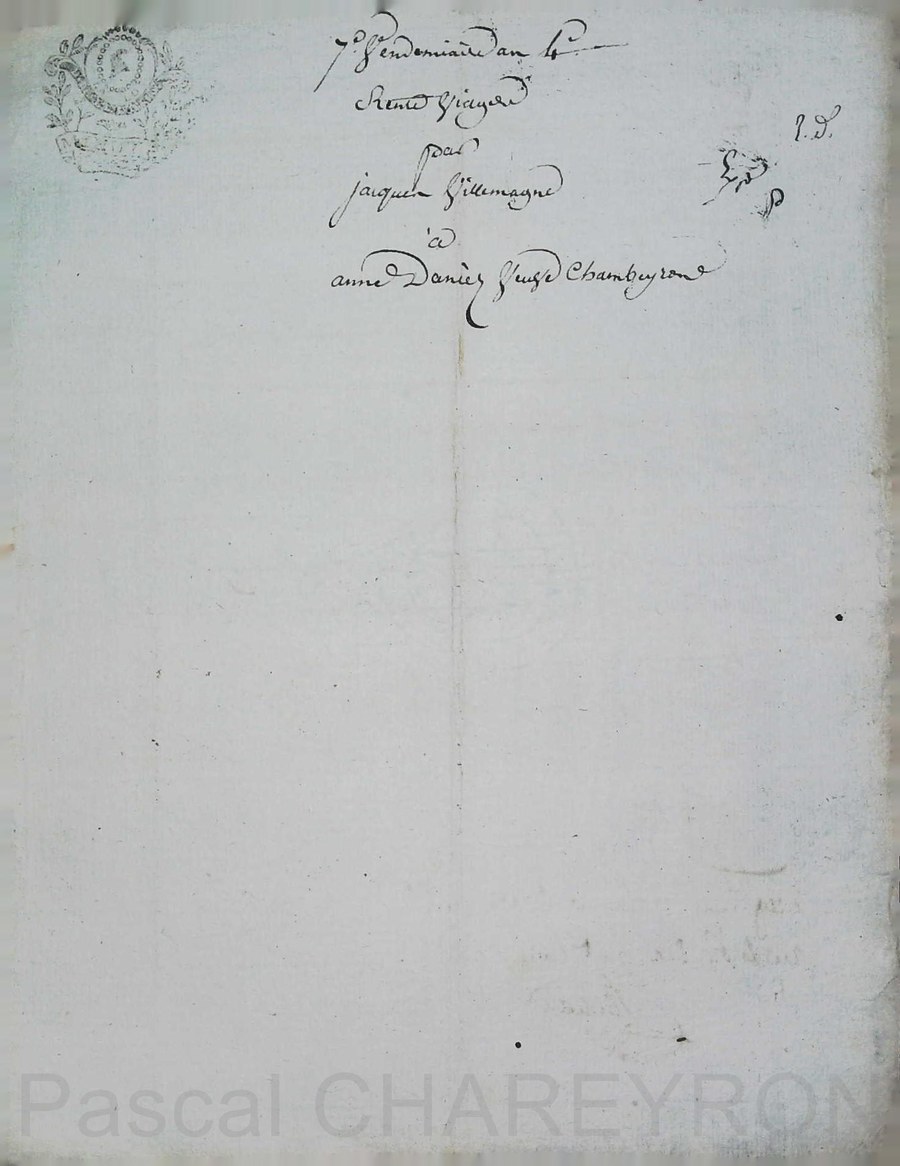 7e Vendemiaire an 4e
Rente Viagere
par
jacques Villemagne
à
anne Daniez Veuve Chambeyrone
Pascal CHAREYRON